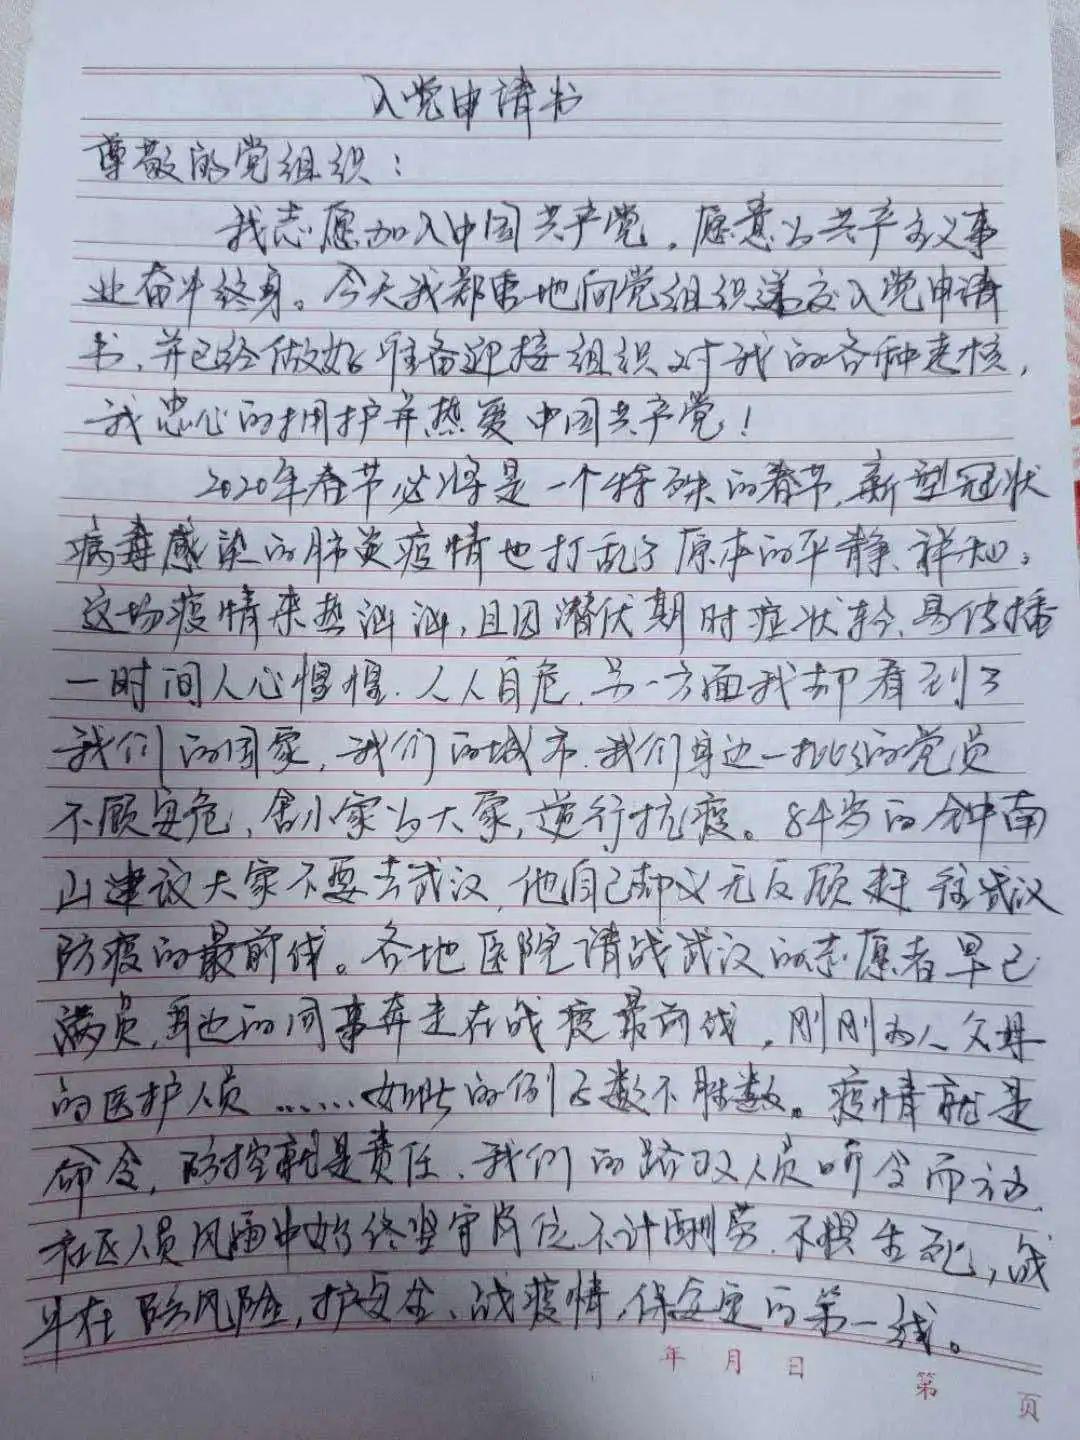 入党申请书
尊敬的党组织：
我志愿加入中国共产党，愿意为共产主义事
业奋斗终身。今天我郑重地向党组织递交入党申请
书，并已经做好准备迎接组织对我的各种考核，
我忠心的拥护并热爱中国共产党！
2020年春节必将是一个特殊的春节，新型冠状
病毒感染的肺炎疫情也打乱了原本的平静、祥和。
这场疫情来势汹汹，且因潜伏期时症状轻、易传播
一时间人心惶惶，人人自危，另一方面我却看到了
我们的国家，我们的城市，我们身边一批批的党员
不顾安危，舍小家为大家，逆行抗疫。84岁的钟南
山建议大家不要去武汉，他自己却义无反顾赶往武汉
防疫的最前线。各地医院请战武汉的志愿者早已
满员，身边的同事奔走在战疫最前线，刚刚为人父母
的医护人员……如此的例子数不胜数。疫情就是
命令，防控就是责任，我们的路政人员听令而动，
社区人员风雨中始终坚守岗位不计酬劳，不惧生死，战
斗在防风险，护安全、战疫情，保安定的第一线。
年 月 日
第 页